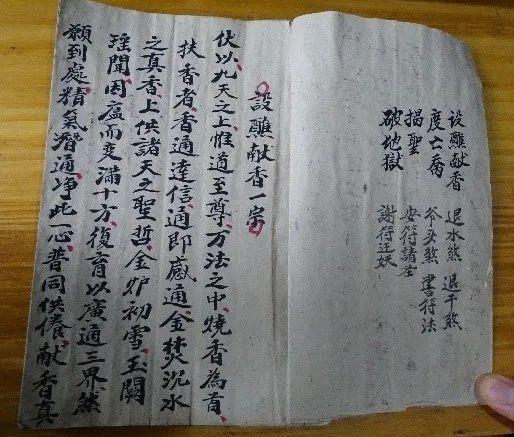 設醮献香 退水煞 退干煞
度亡喬 爷头煞 書符法
揭聖 安符請圣
破地獄 謝符
設醮献香一宗
伏以九天之上惟道至尊万法之中燒香為首
扶香者香通達信通即感通金焚沉水
之真香上供諸天之聖哲金炉初雪玉闕
瑶聞因廬而变滿十方復育以廣通三界然
願到處精氣潛通净此一心普同供養献香真